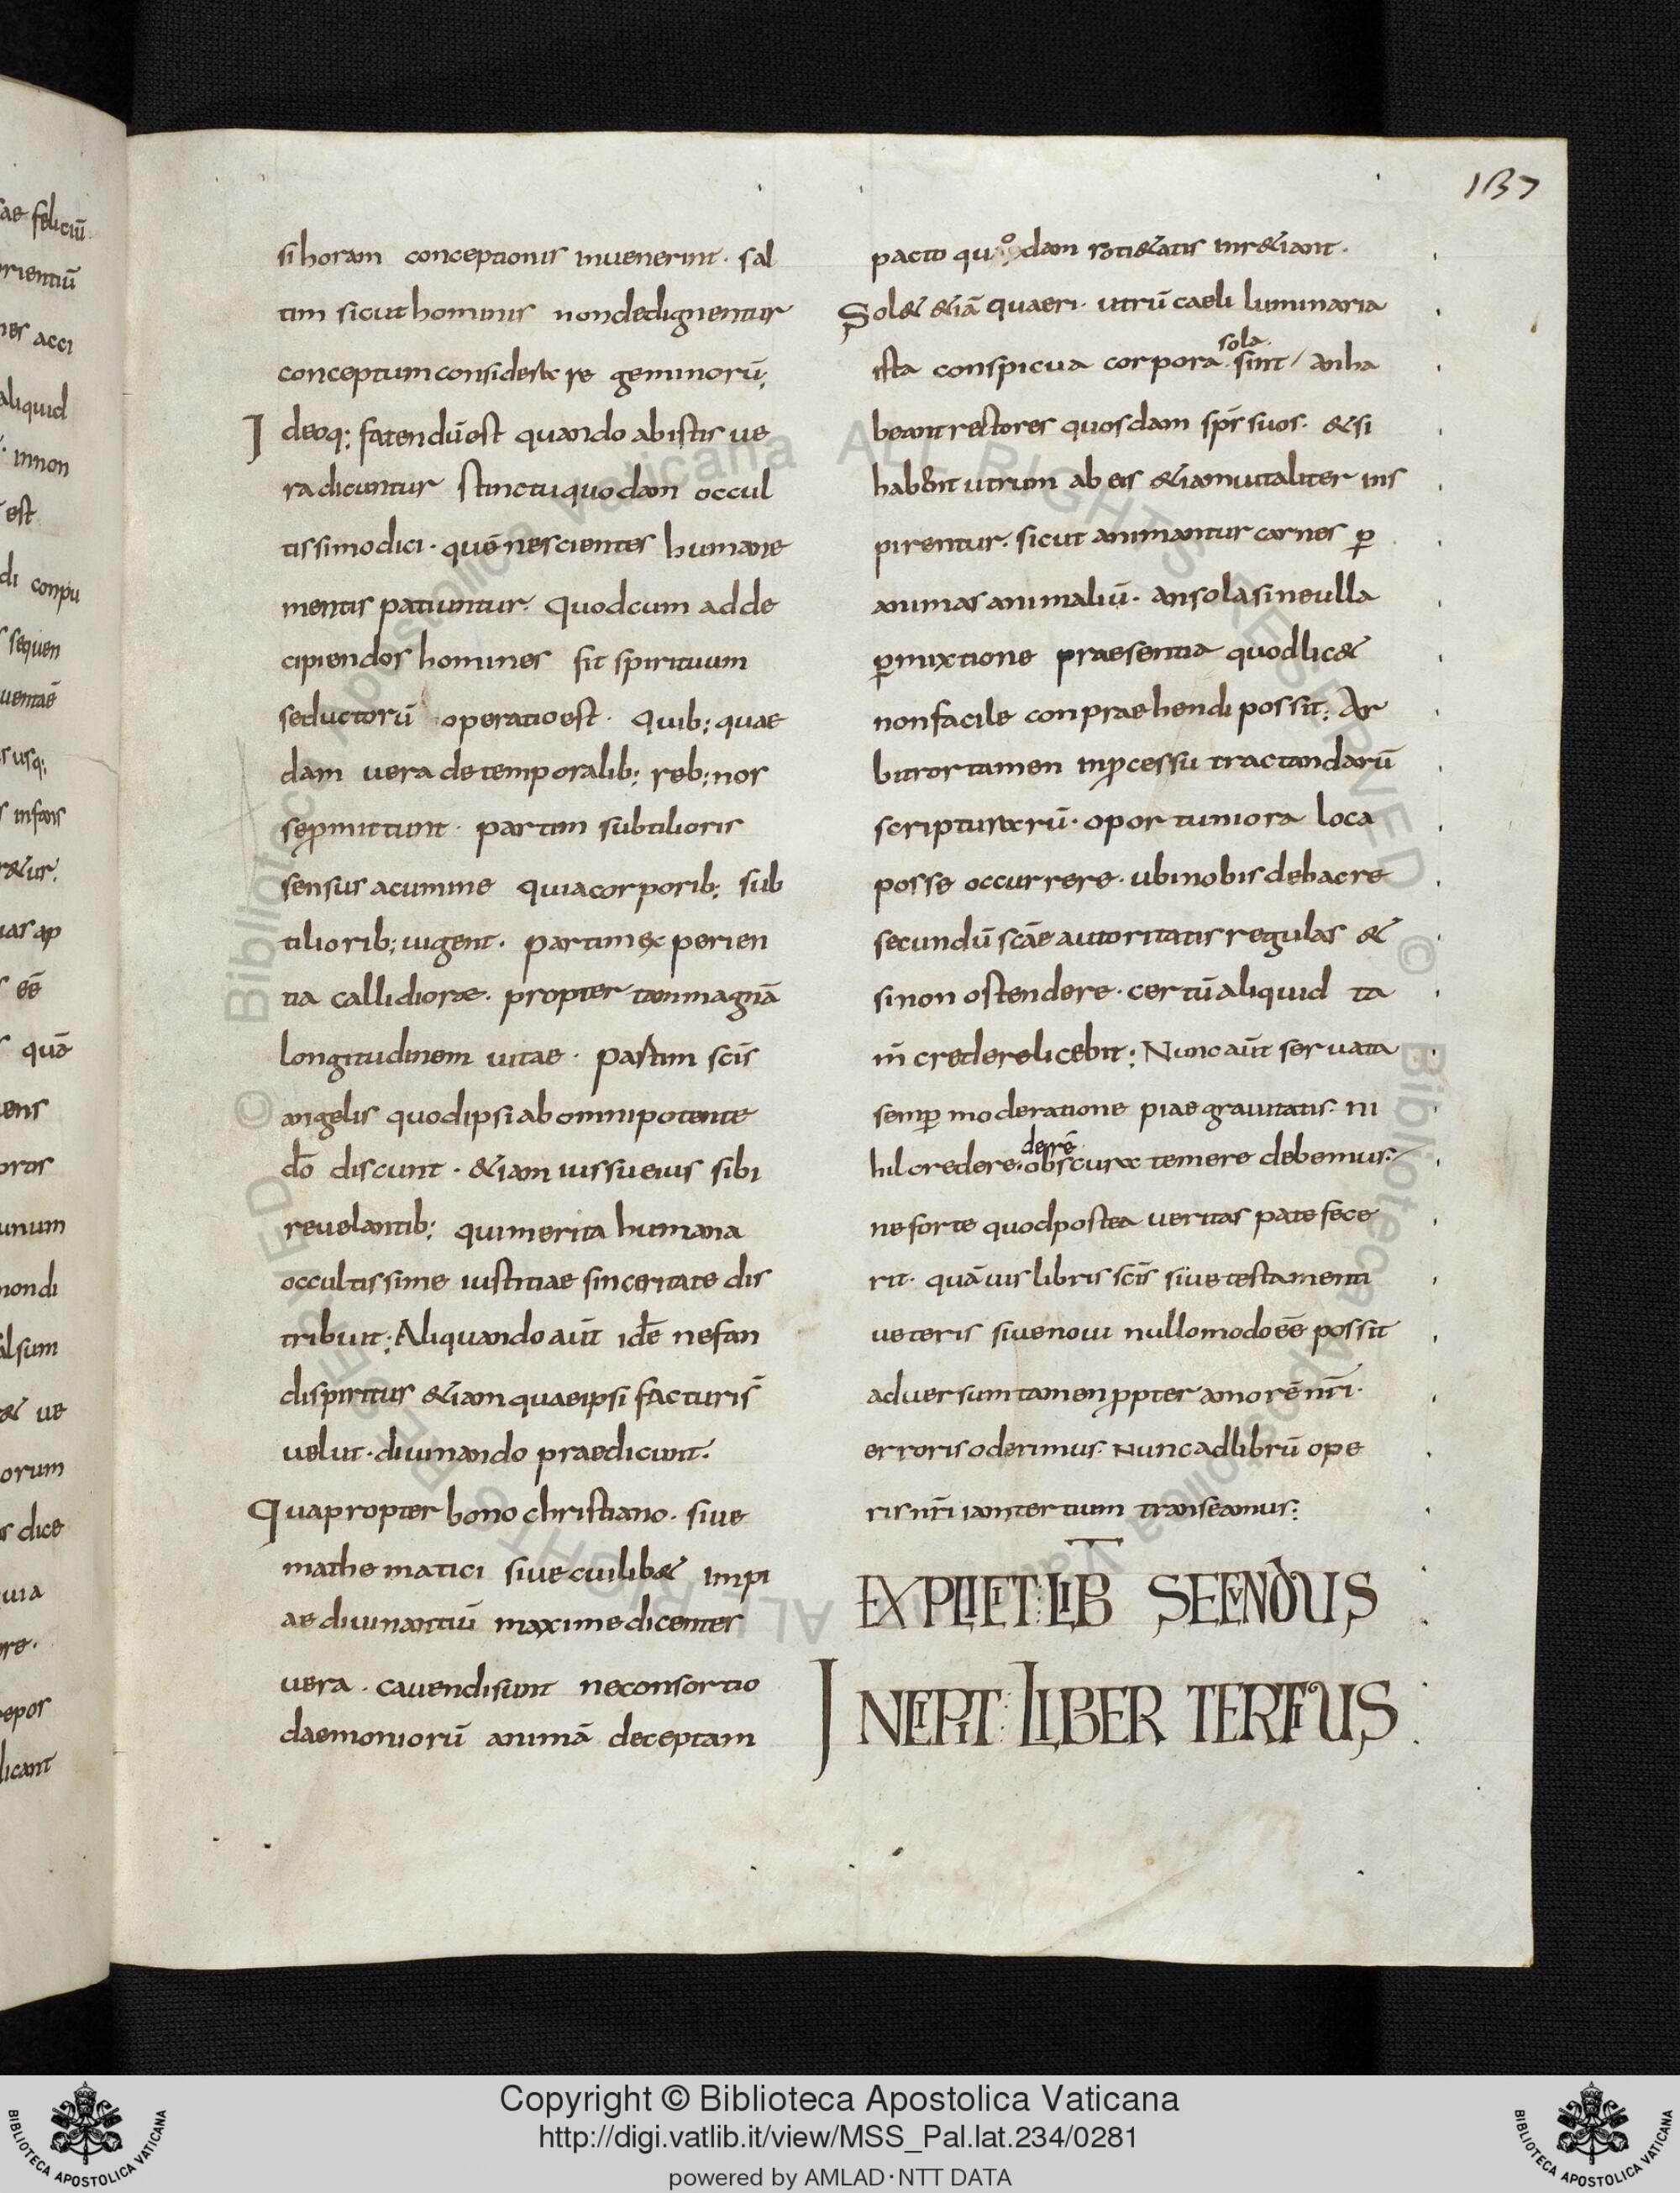 ae feliciū.
rientiū
nes acci
aliquid
· innon
est
di conpu
sequen
uentaē
s usq;
s infans
r&ur.
uas ap
s eē
s quā
ens
unum
nondi
alsum
& ue
orum
s dice
uia
re.
repos
licant
137
si horam conceptionis inuenerint · sal
tim sicut hominis non dedignentur
conceptum considerare geminorū;
Ideoq; fatendū est quando ab istis ue
ra dicuntur stinctu quodam occul
tissimo dici · quē nescientes humane
mentis patiuntur. Quod cum ad de
cipiendos homines fit spirituum
seductorū operatio est · Quib; quae
dam uera de temporalib; reb; nos
se p̄mittunt · partim subtilioris
sensus acumine quia corporib; sub
tiliorib; uigent · partim experien
tia callidiore · propter tam magnā
longitudinem uitae · Partim scīs
angelis quod ipsi ab omnipotente
dō discunt · &iam iussu eius sibi
reuelantib; qui merita humana
occultissime iustitiae sinceritate dis
tribuit; Aliquando aūt idē nefan
di spiritus &iam quae ipsi facturi s̄
uelut · diuinando praedicunt.
Quapropter bono christiano · siue
mathematici siue cuilib& impi
ae diuinantiū maxime dicentes
uera · cauendi sunt ne consortio
daemoniorū animā deceptam
pacto quodam soti&atis inr&iant ·
Sol& &iā quaeri · utrū caeli luminaria
sola
ista conspicua corpora · sint / an ha
beant rectores quosdam sp̄s suos · & si
habent utrum ab eis &iam uitaliter ins
pirentur · sicut animantur carnes ꝑ
animas animaliū · an sola sine ulla
ꝑmixtione praesentia quod lic&
non facile conpraehendi possit; Ar
bitror tamen in ꝓcessu tractandarū
scripturarū · oportuniora loca
posse occurrere · ubi nobis de hac re
secundū scāe autoritatis regulas &
si non ostendere · certū aliquid ta
m̄ credere licebit; Nunc aūt seruata
semꝑ moderatione piae grauitatis · ni
de rē
hil credere · obscura temere debemus ·
ne forte quod postea ueritas patefece
rit · quāuis libris scīs siue testamenti
ueteris siue noui nullo modo eē possit
aduersum tamen ꝓpter amorē nr̄i ·
erroris oderimus · Nunc ad librū ope
ris nr̄i iam tertium transeamus;
EXPLICIT: LIB SECUNDUS
INCIPIT: LIBER TERTIUS
© Biblioteca Apostolica Vaticana ALL RIGHTS RESERVED © Biblioteca Apostolica Vaticana ALL RIGHTS RESERVED
BIBLIOTECA APOSTOLICA VATICANA
Copyright © Biblioteca Apostolica Vaticana
http://digi.vatlib.it/view/MSS_Pal.lat.234/0281
powered by AMLAD·NTT DATA
BIBLIOTECA APOSTOLICA VATICANA